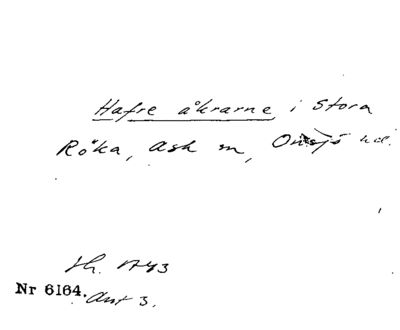 Hafre åkrarne i Stora
Röka, Ask sn, Onsjö hd.
h. 1743
Nr 6164. Ant 3.